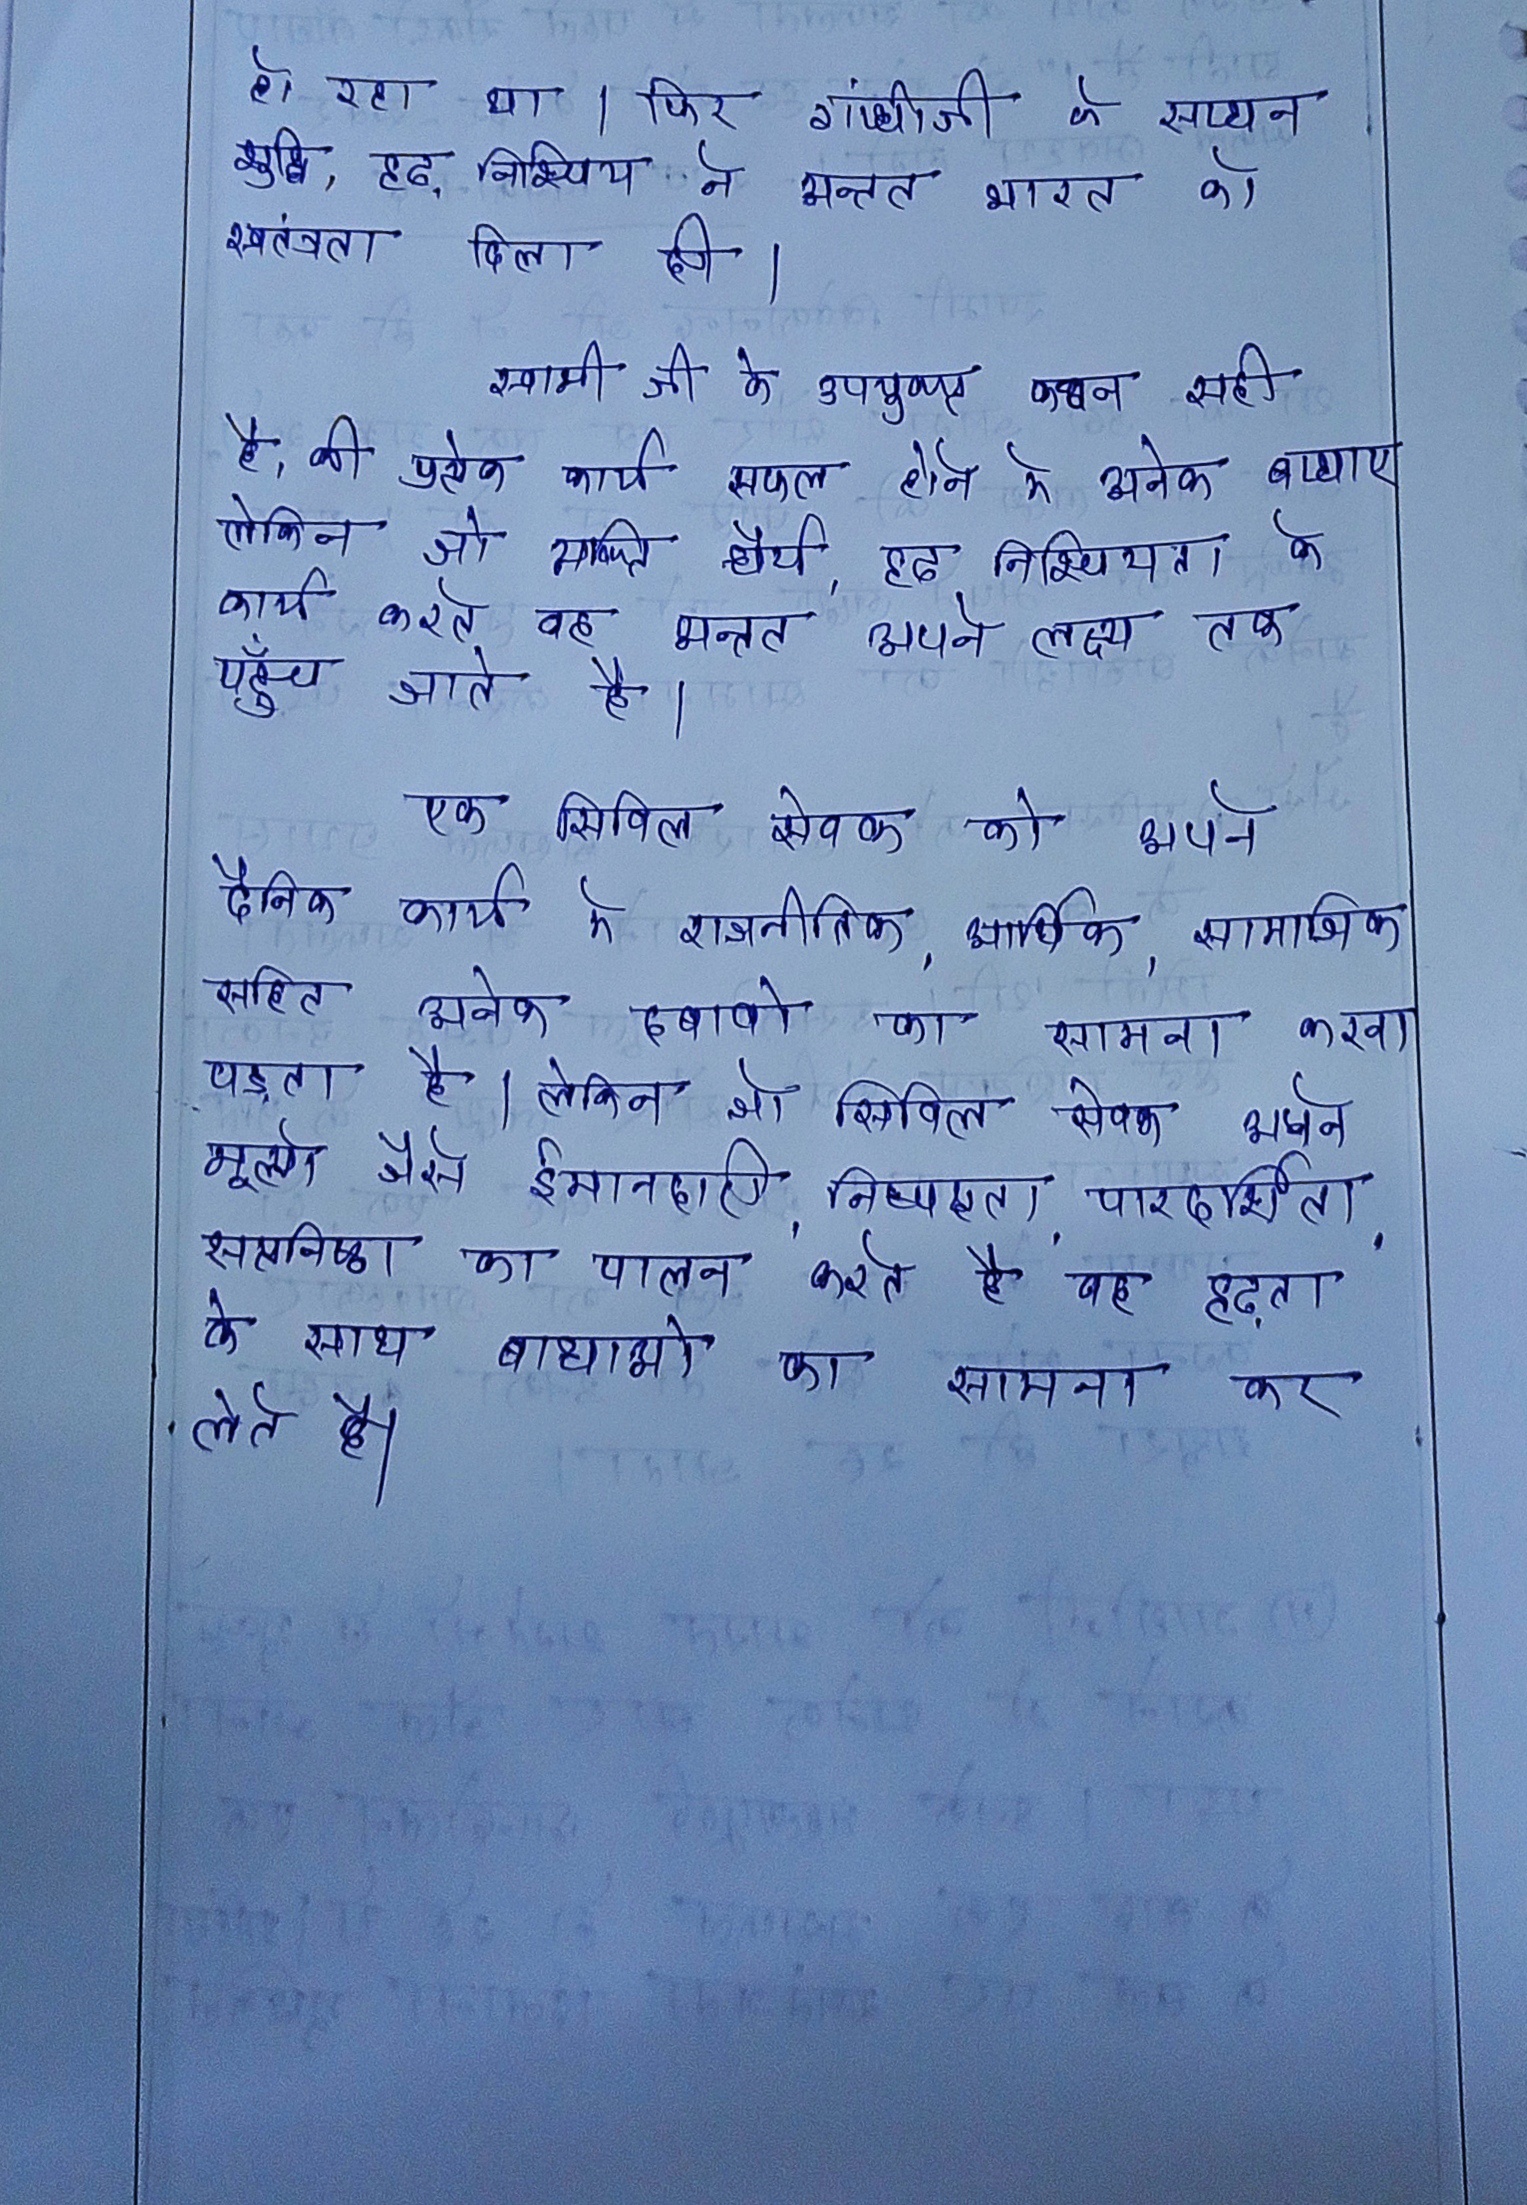 हो रहा था । फिर गांधीजी के साधन
शुद्धि, दृढ़ निश्चिय ने अन्तत भारत को
स्वतंत्रता दिला दी ।
स्वामी जी के उपयुक्त कथन सही
है, की प्रत्येक कार्य सफल होने मे अनेक बाधाए
लेकिन जो व्यक्ति धैर्य, दृढ़ निश्चियता के
कार्य करते वह अन्तत अपने लक्ष्य तक
पहुँच जाते है ।
एक सिविल सेवक को अपने
दैनिक कार्य मे राजनीतिक, आर्थिक, सामाजिक
सहित अनेक दबावो का सामना करना
पड़ता है । लेकिन जो सिविल सेवक अपने
मूल्यो जैसे ईमानदारी, निष्पक्षता, पारदर्शिता,
सत्यनिष्ठा का पालन करते है वह दृढ़ता
के साथ बाधाओ का सामना कर
लेते है।